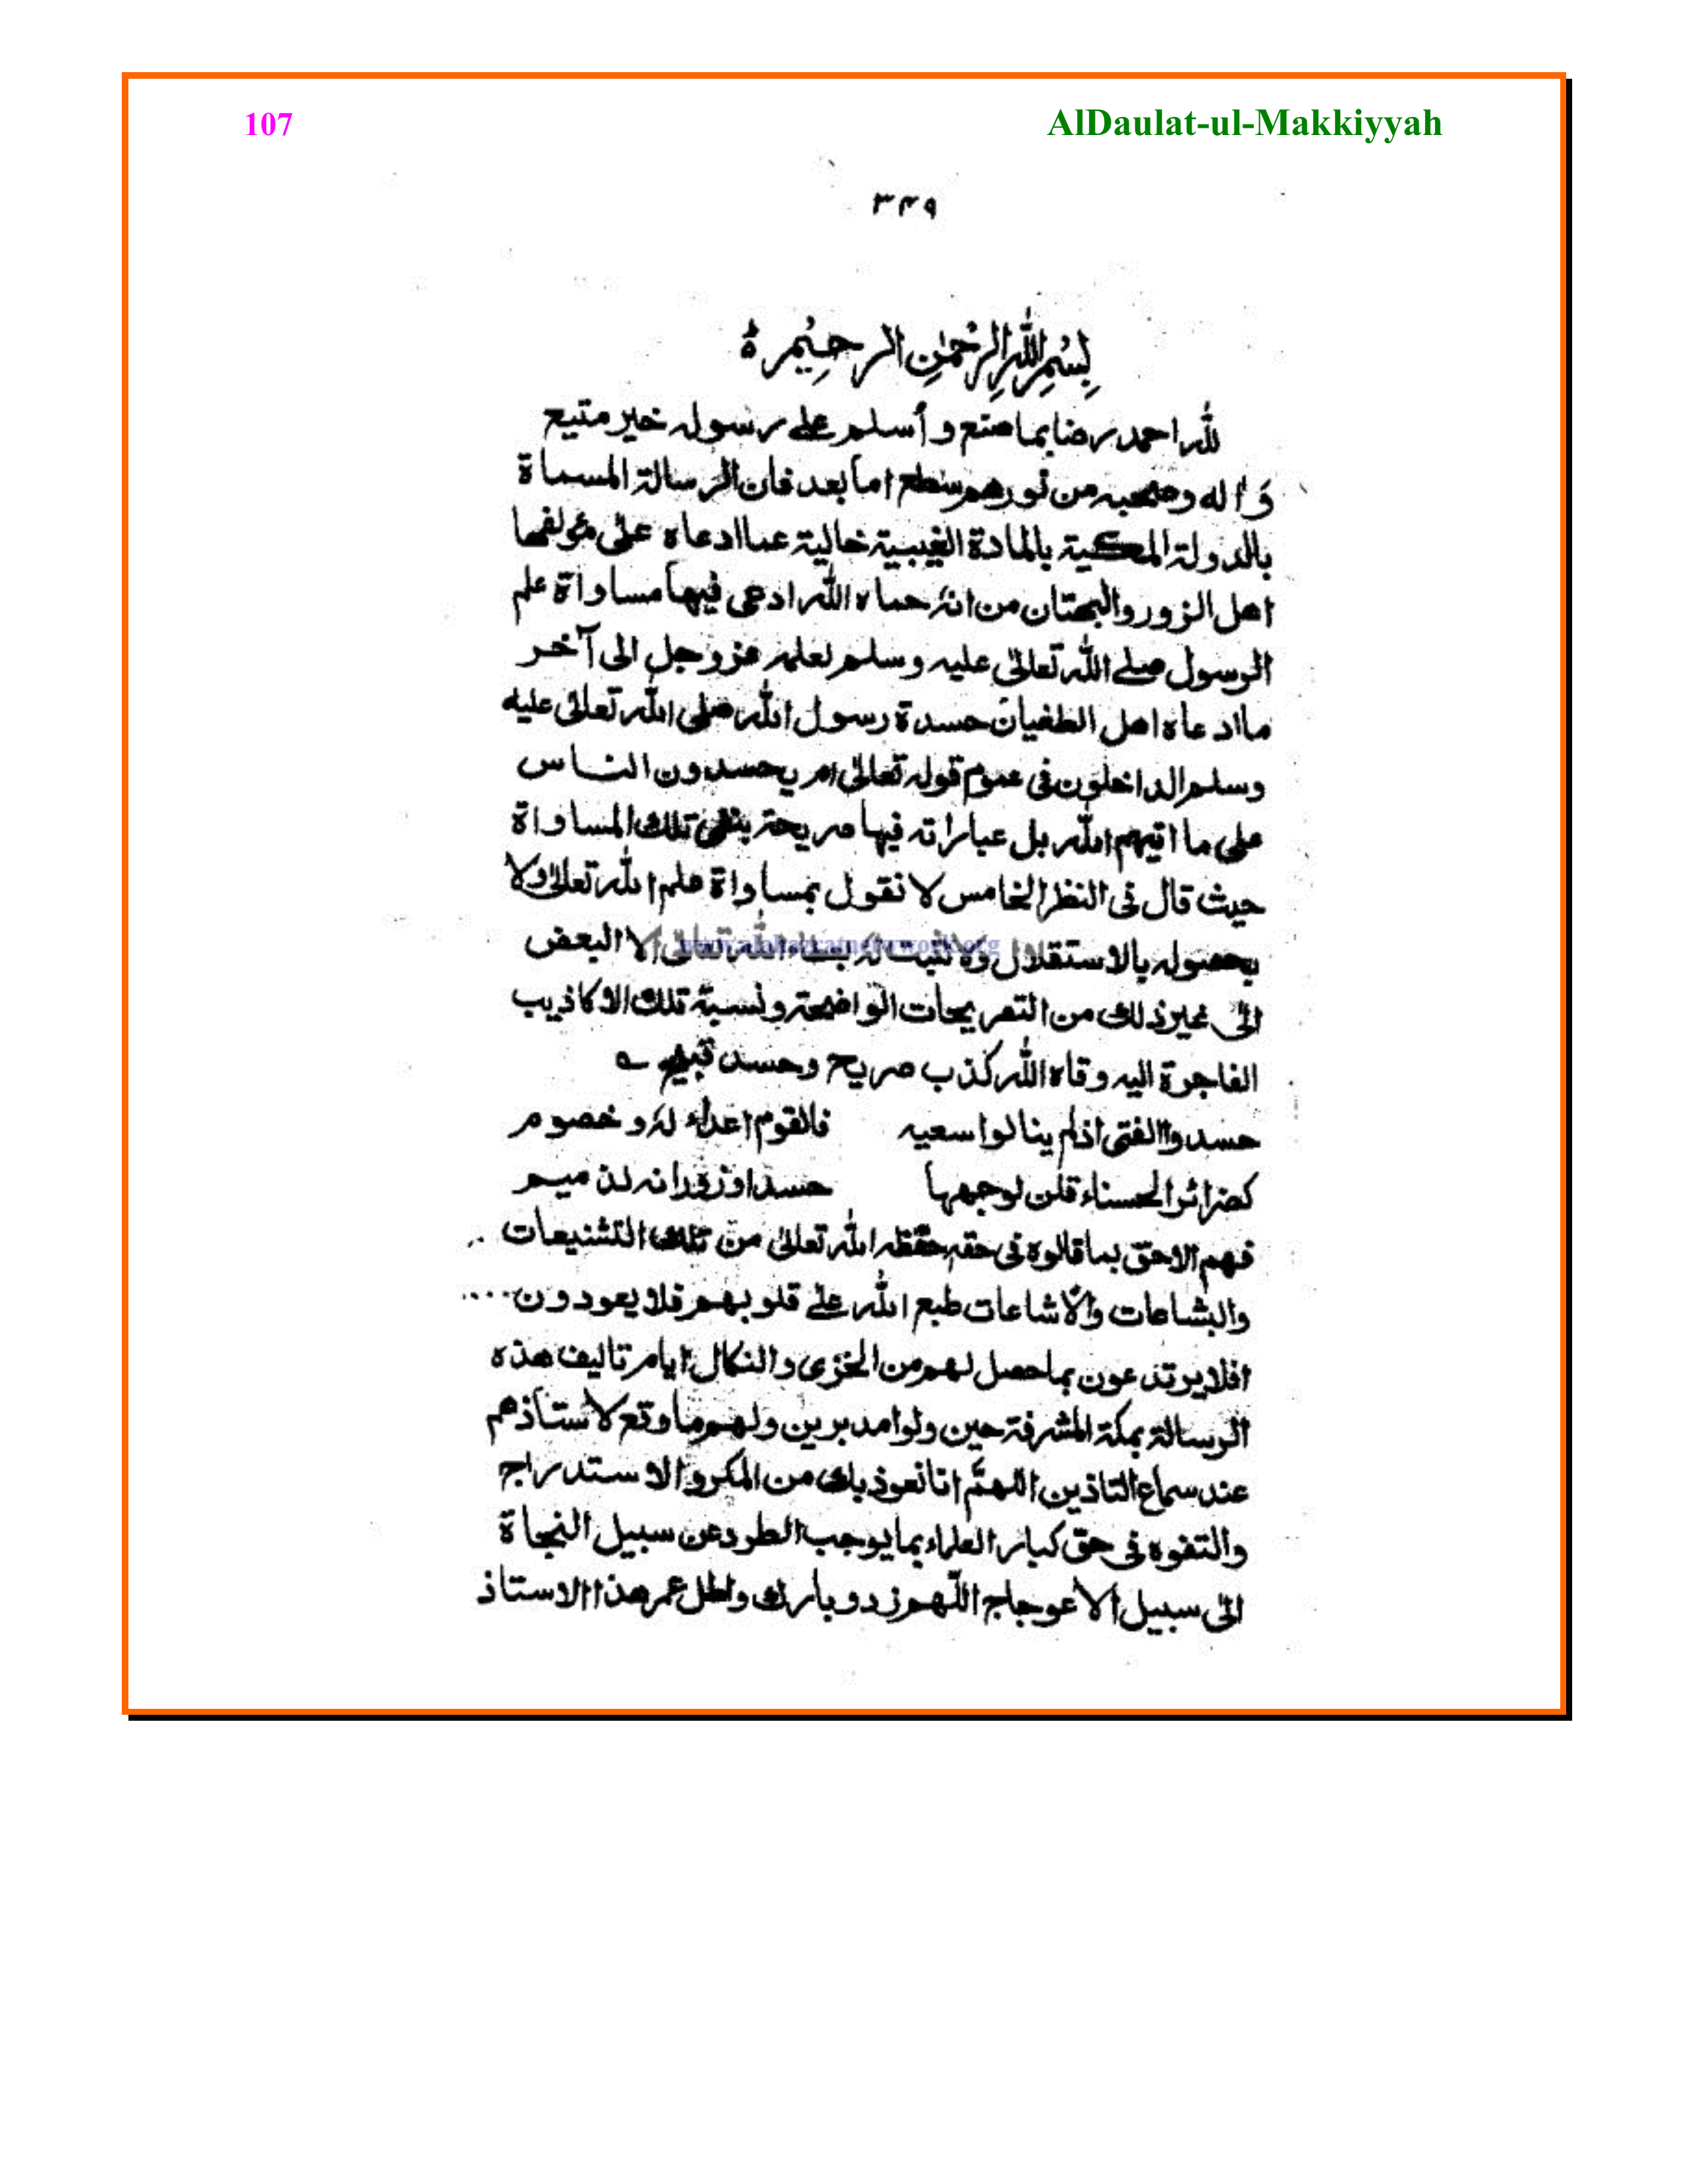 107 AlDaulat-ul-Makkiyyah
۳۴۹
بِسْمِ اللّٰهِ الرَّحْمٰنِ الرحِيْمِ ه
للّٰه احمد رضا بما صنع و أسلم علے رسوله خير متبع
و آله وصحبه من نورهم سطع اما بعد فان الرسالة المسماة
بالدولة المكية بالمادة الغيبية خالية عما ادعاه علىٰ مؤلفها
اهل الزور والبهتان من انهٗ حماه اللّٰه ادعى فيها مساواة علم
الرسول صلے اللّٰه تعالىٰ عليه وسلم لعلمه عزوجل الى آخر
ما ادعاه اهل الطغيان حسدة رسول اللّٰه صلى اللّٰه تعالىٰ عليه
وسلم الداخلون فى عموم قوله تعالىٰ ام يحسدون الناس
على ما اتيهم اللّٰه بل عباراته فيها صريحة بنفى تلك المساواة
حيث قال فى النظر الخامس لا نقول بمساواة علم اللّٰه تعالىٰ ولا
بحصوله بالاستقلال ولا نثبت له بعطاء اللّٰه تعالىٰ الا البعض
www.alahazratnetwork.org
الىٰ غير ذلك من التصريحات الواضحة ونسبة تلك الاكاذيب
الفاجرة اليه وقاه اللّٰه كذب صريح وحسد قبيح ؎
حسدوا الفتى اذلم ينالوا سعيه فالقوم اعداء لهٗ و خصوم
كضرائر الحسناء قلن لوجهها حسدا وزورا انه لذميم
فهم الاحق بما قالوه فى حقه حفظه اللّٰه تعالىٰ من تلك التشنيعات
والبشاعات والاشاعات طبع اللّٰه علے قلوبهم فلا يعودون....
افلا يرتدعون بما حصل لهم من الخزى والنكال ايام تاليف هذه
الرسالة بمكة المشرفة حين ولوا مدبرين ولهم ما وقع لاستاذهم
عند سماع التاذين اللهمّ انا نعوذ بك من المكر والاستدراج
والتفوه فى حق كبار العلماء بما يوجب الطرد عن سبيل النجاة
الىٰ سبيل الاعوجاج اللّٰهم زد وبارك واطل عمر هذا الاستاذ